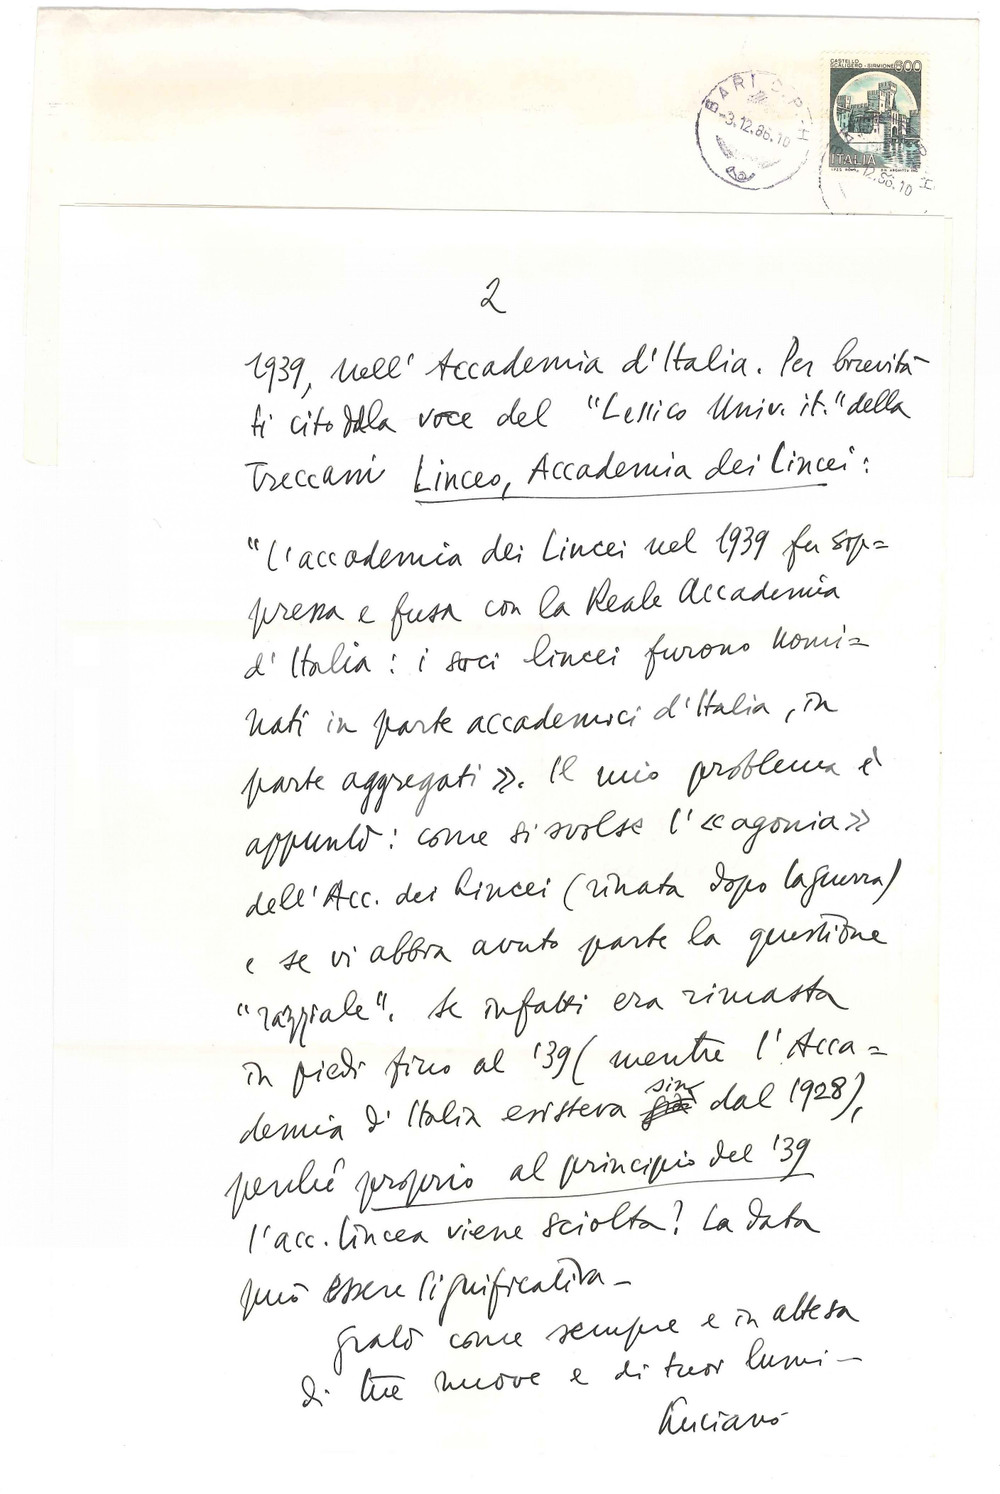 CASTELLO
SCALIGERO - SIRMIONE 600
BARI C.P. H
-3.12.86.10
ITALIA
12.86.10
2
1939, nell' Accademia d'Italia. Per brevità
ti cito dalla voce del "Lessico Univ. it." della
Treccani Linceo, Accademia dei Lincei:
"L'accademia dei Lincei nel 1939 fu sop=
pressa e fusa con la Reale Accademia
d'Italia: i soci lincei furono nomi=
nati in parte accademici d'Italia, in
parte aggregati ». Il mio problema è
appunto: come si svolse l'«agonia»
dell'Acc. dei Lincei (rinata dopo la guerra)
e se vi abbia avuto parte la questione
"razziale". Se infatti era rimasta
in piedi fino al '39 (mentre l'Acca=
demia d'Italia esisteva sin dal 1928),
perché proprio al principio del '39
l'acc. lincea viene sciolta? La data
può essere significativa –
Grato come sempre e in attesa
di tue nuove e di tuoi lumi –
Luciano